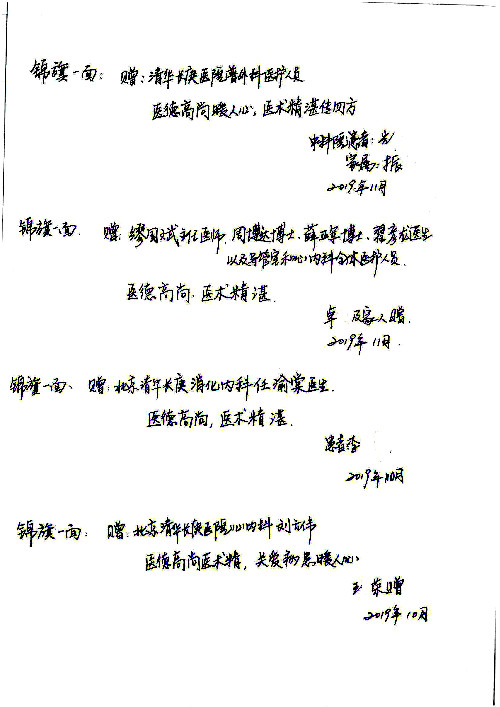 锦旗一面： 赠：清华长庚医院普外科医护人员
医德高尚暖人心，医术精湛传四方
中科院患者：
家属：振
2019年11月
锦旗一面. 赠：缪国斌主任医师、周博达博士、薛亚军博士、翟彦龙医生
以及导管室和心内科全体医护人员.
医德高尚. 医术精湛.
卓 及家人赠.
2019年11月.
锦旗一面、 赠：北京清华长庚消化内科任渝棠医生.
医德高尚，医术精湛.
患者李
2019年10月
锦旗一面： 赠：北京清华长庚医院心内科刘方伟
医德高尚医术精，关爱病患暖人心
王 荣赠
2019年10月